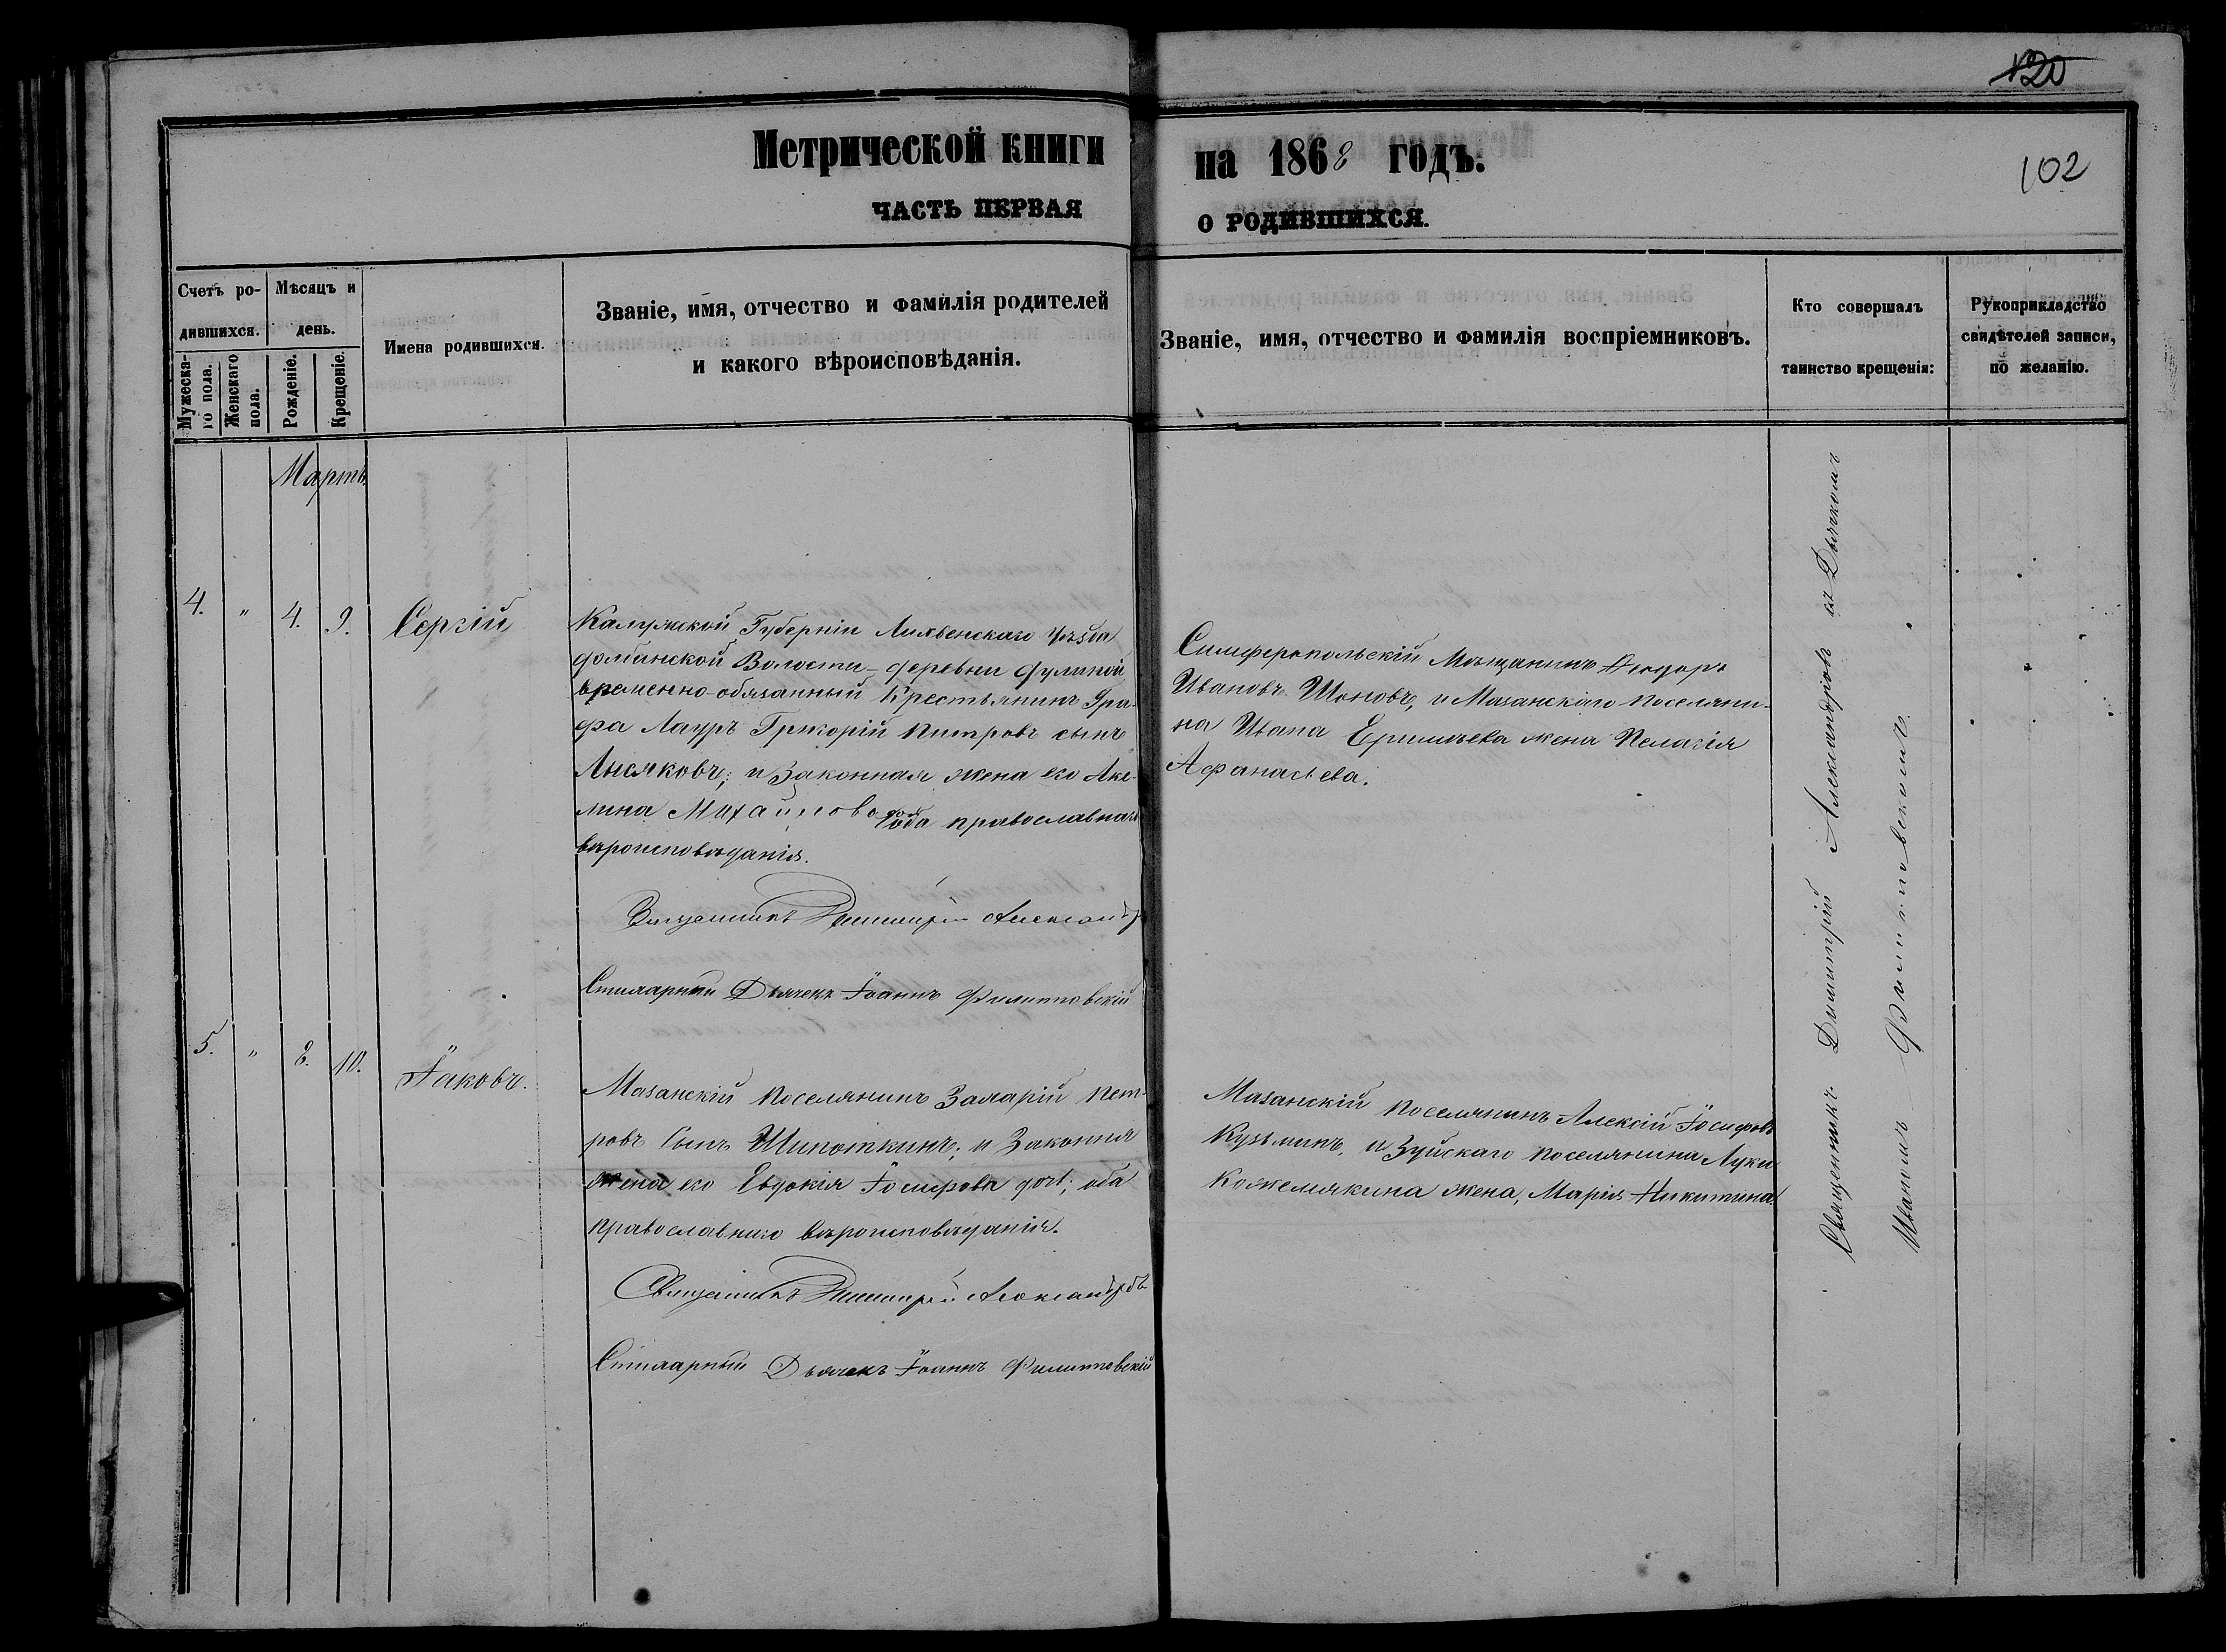 120
102
Метрической книги на 1868 годъ.
ЧАСТЬ ПЕРВАЯ О РОДИВШИХСЯ.
Счетъ ро-
дившихся.
Мужеска-
го пола.
Женскаго
пола.
Мѣсяцъ и
день.
Рожденіе.
Крещеніе.
Имена родившихся.
Званіе, имя, отчество и фамилія родителей
и какого вѣроисповѣданія.
Званіе, имя, отчество и фамилія воспріемниковъ.
Кто совершалъ
таинство крещенія:
Рукоприкладство
свидѣтелей записи,
по желанію.
Мартъ.
4. " 4. 9. Сергій
Калужской Губерніи Лихвенскаго уѣзда
Волости деревни
временно-обязанный Крестьянинъ Гра-
фа Григорій Петровъ сынъ
Лысяковъ; и Законная жена его Аке-
лина Михайлова оба православнаго
вѣроисповѣданія.
Священникъ Димитрій Александровъ
Дьячекъ Іоаннъ Филипповскій
Симферопольскій Мѣщанинъ Ѳеодоръ
Ивановъ Шоновъ, и Мазанскаго поселяни-
на Ивана жена Пелагія
Афанасьева.
Священникъ Димитрій Александровъ съ Дьячкомъ
Иваномъ Филипповскимъ.
5. " 8. 10. Іаковъ.
Мазанскій поселянинъ Захарій Пет-
ровъ сынъ Шипоткинъ; и Законная
жена его Евдокія Іосифова доч; оба
православнаго вѣроисповѣданія.
Священникъ Димитрій Александровъ
Дьячекъ Іоаннъ Филипповскій
Мазанскій поселянинъ Алексій Іосифовъ
Кузьминъ, и Зуйскаго поселянина Луки
Кожемякина жена, Марія Никитина.